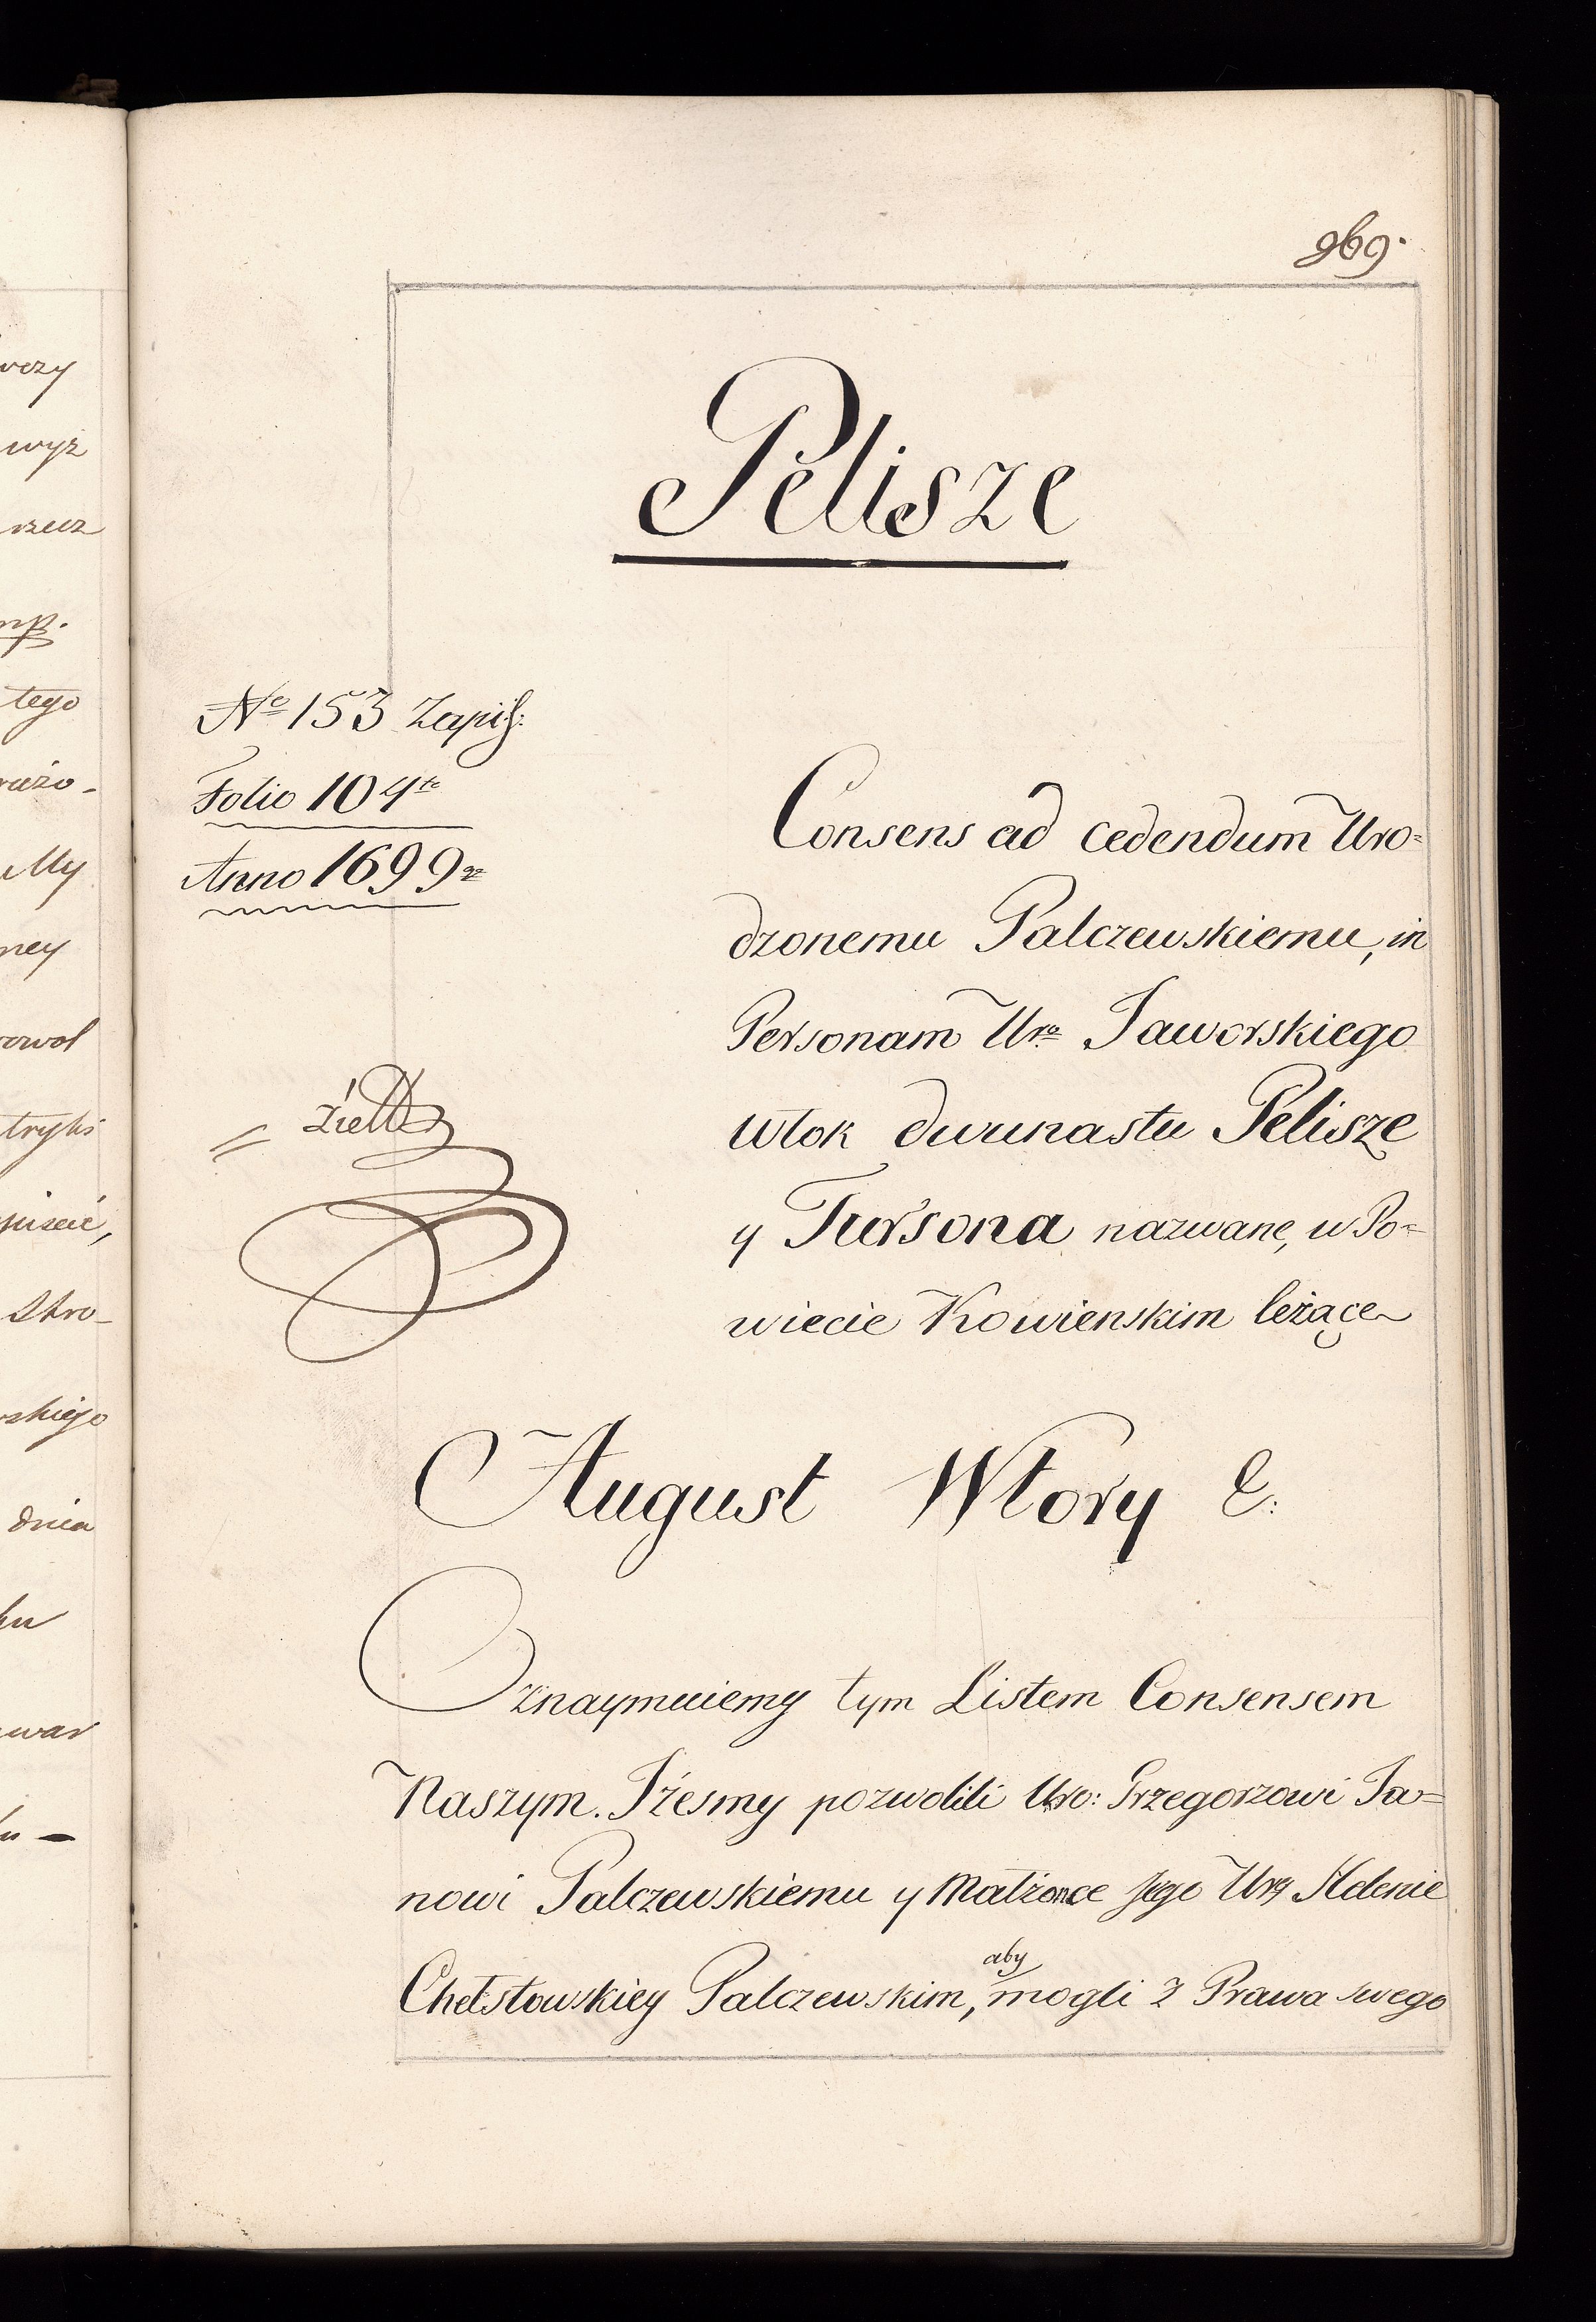 wczy
wyż
rzecz
mp.
tego
My
ney
dnia
969.
Pelisze
No 153 Zapis:
Folio 104te
Anno 1699ne
Consens ad cedendum Uro=
dzonemu Palczewskiemu, in
Personam Uro Jaworskiego
Włok dwunastu Pelisze
y Tursona nazwane, w Po=
wiecie Kowienskim leżące
August Wtory &:
Oznaymuiemy tym Listem Consensem
Naszym. Iżesmy pozwolili Uro: Grzegorzowi Ja=
nowi Palczewskiemu y Małżonce Jego Urq Helenie
Chełstowskiey Palczewskim, aby mogli z Prawa swego